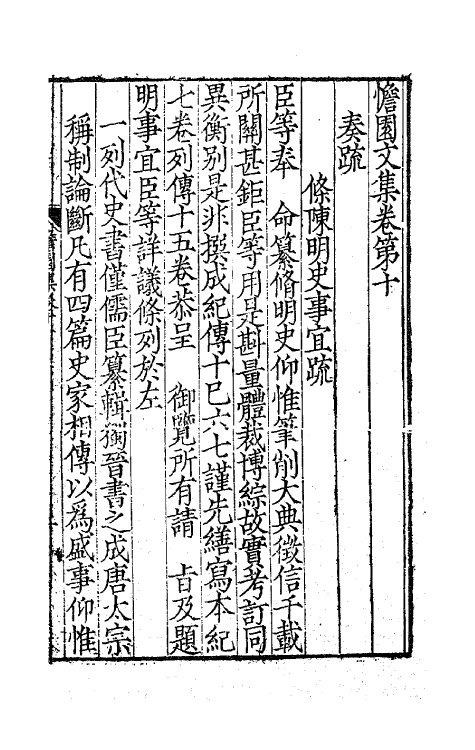 憺園文集卷第十
奏疏
條陳明史事宜疏
臣等奉 命纂脩明史仰惟筆削大典徵信千載
所關甚鉅臣等用是斟量體裁博綜故實考訂同
異衡别是非撰成紀傳十巳六七謹先繕寫本紀
七卷列傳十五卷恭呈 御覽所有請 旨及題
明事宜臣等詳議條列於左
一列代史書僅儒臣纂輯獨晉書之成唐太宗
稱制論斷凡有四篇史家相傳以爲盛事仰惟